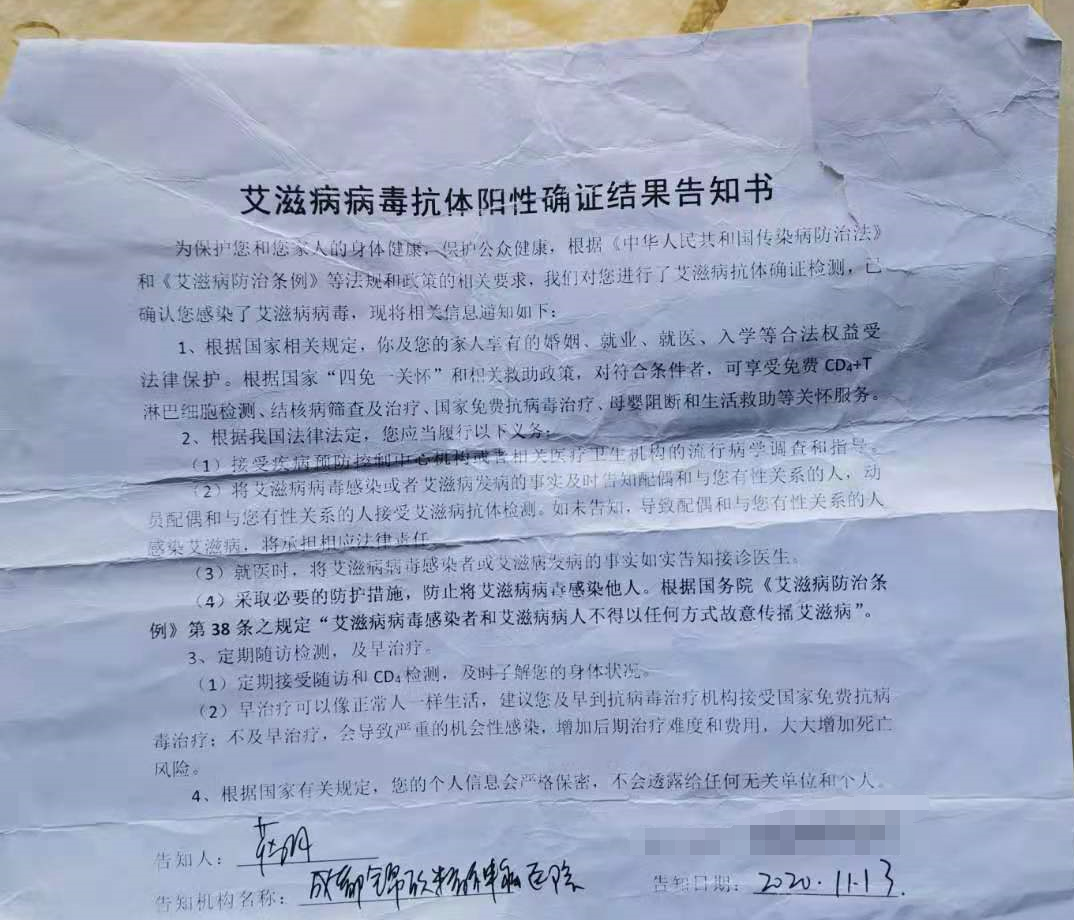 艾滋病病毒抗体阳性确证结果告知书
为保护您和您家人的身体健康，保护公众健康，根据《中华人民共和国传染病防治法》
和《艾滋病防治条例》等法规和政策的相关要求，我们对您进行了艾滋病抗体确证检测，已
确认您感染了艾滋病病毒，现将相关信息通知如下：
1、根据国家相关规定，你及您的家人享有的婚姻、就业、就医、入学等合法权益受
法律保护。根据国家“四免一关怀”和相关救助政策，对符合条件者，可享受免费 CD₄+T
淋巴细胞检测、结核病筛查及治疗、国家免费抗病毒治疗、母婴阻断和生活救助等关怀服务。
2、根据我国法律法定，您应当履行以下义务：
（1）接受疾病预防控制中心机构或者相关医疗卫生机构的流行病学调查和指导。
（2）将艾滋病病毒感染或者艾滋病发病的事实及时告知配偶和与您有性关系的人，动
员配偶和与您有性关系的人接受艾滋病抗体检测。如未告知，导致配偶和与您有性关系的人
感染艾滋病，将承担相应法律责任
（3）就医时，将艾滋病病毒感染者或艾滋病发病的事实如实告知接诊医生。
（4）采取必要的防护措施，防止将艾滋病病毒感染他人。根据国务院《艾滋病防治条
例》第 38 条之规定“艾滋病病毒感染者和艾滋病病人不得以任何方式故意传播艾滋病”。
3、定期随访检测，及早治疗。
（1）定期接受随访和 CD₄ 检测，及时了解您的身体状况。
（2）早治疗可以像正常人一样生活，建议您及早到抗病毒治疗机构接受国家免费抗病
毒治疗；不及早治疗，会导致严重的机会性感染，增加后期治疗难度和费用，大大增加死亡
风险。
4、根据国家有关规定，您的个人信息会严格保密，不会透露给任何无关单位和个人。
告知人：
告知机构名称：成都锦欣精神病医院 告知日期：2020.11.13.